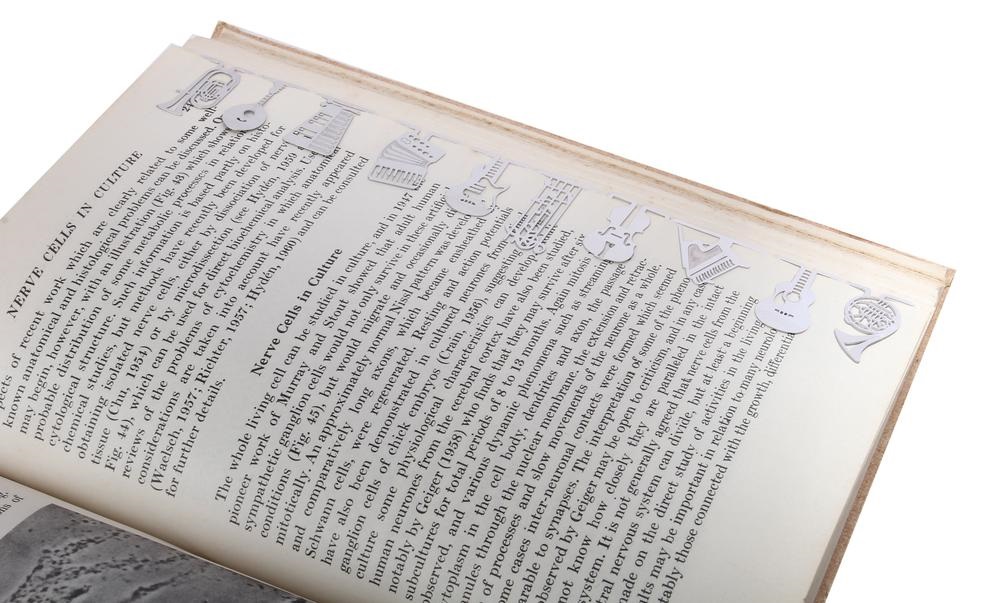 NERVE CELLS IN CULTURE
pects of recent work which are clearly related to some well-
known anatomical and histological problems can be discussed.
may begin, however, with an illustration (Fig. 43) which show
probable distribution of some metabolic processes in relation
cytological structure. Such information is based partly on histo-
chemical studies, but methods have recently been developed for
obtaining isolated nerve cells, either by dissociation of nerv
tissue (Chu, 1954) or by microdissection (see Hydén, 1959
Fig. 44), which can be used for direct biochemical analysis.
reviews of the problems of cytochemistry, in which anatomical
considerations are taken into account have recently appeared
(Waelsch, 1957; Richter, 1957; Hydén, 1960) and can be consulted
for further details.
Nerve Cells in Culture
The whole living cell can be studied in culture, and in 1947
pioneer work of Murray and Stout showed that adult human
sympathetic ganglion cells would not only survive in these artific
conditions (Fig. 45), but would migrate and occasionally
mitotically. An approximately normal Nissl pattern was devel
and comparatively long axons, which became ensheathed
Schwann cells, were regenerated. Resting and action potentials
have also been demonstrated in cultured neurones from
ganglion cells of chick embryos (Crain, 1956), suggesting
culture some physiological characteristics can develop
human neurones from the cerebral cortex have also been studied,
notably by Geiger (1958) who finds that they may survive after
subcultures for total periods of 8 to 13 months. Again mitosis
observed, and various dynamic phenomena such as streaming
ytoplasm in the cell body, dendrites and axon, the passage
anules through the nuclear membrane, the extension and retrac-
of processes and slow movements of the neurone as a whole.
ome cases inter-neuronal contacts were formed which seemed
arable to synapses. The interpretation of some of the phen
observed by Geiger may be open to criticism, and in any case
not know how closely they are paralleled in the intact
system. It is not generally agreed that nerve cells from the
tral nervous system can divide, but at least a beginning
made on the direct study of activities in the living
ults may be important in relation to many neurol
tably those connected with the growth, differentia